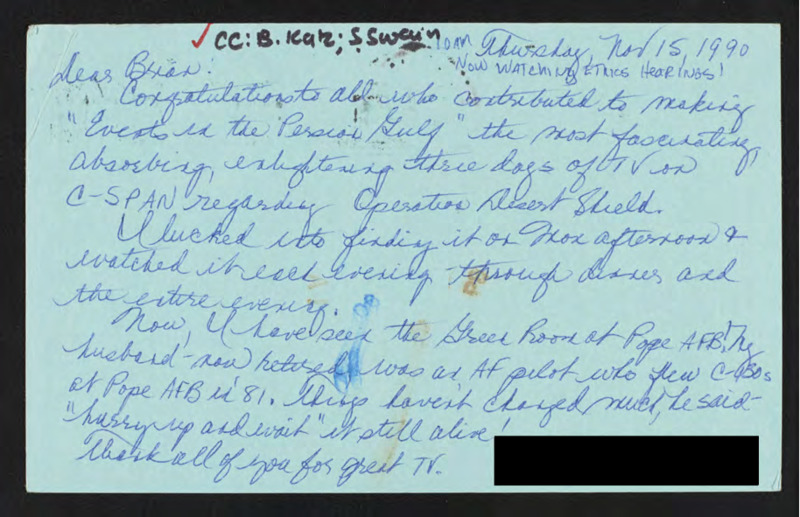 ✓ CC: B. Katz; S Swain
10AM Thursday, Nov 15, 1990
NOW WATCHING ETHICS HEARINGS!
Dear Brian:
Congratulations to all who contributed to making
"Events in the Persian Gulf" the most fascinating,
absorbing, enlightening three days of TV on
C-SPAN regarding Operation Desert Shield.
I lucked into finding it on Mon afternoon &
watched it each evening through dinner and
the entire evening.
Now, I have seen the Green Room at Pope AFB! My
husband - now retired was an AF pilot who flew C-130s
at Pope AFB in '81. Things haven't changed much, he said -
"hurry up and wait" is still alive!
Thank all of you for great TV.